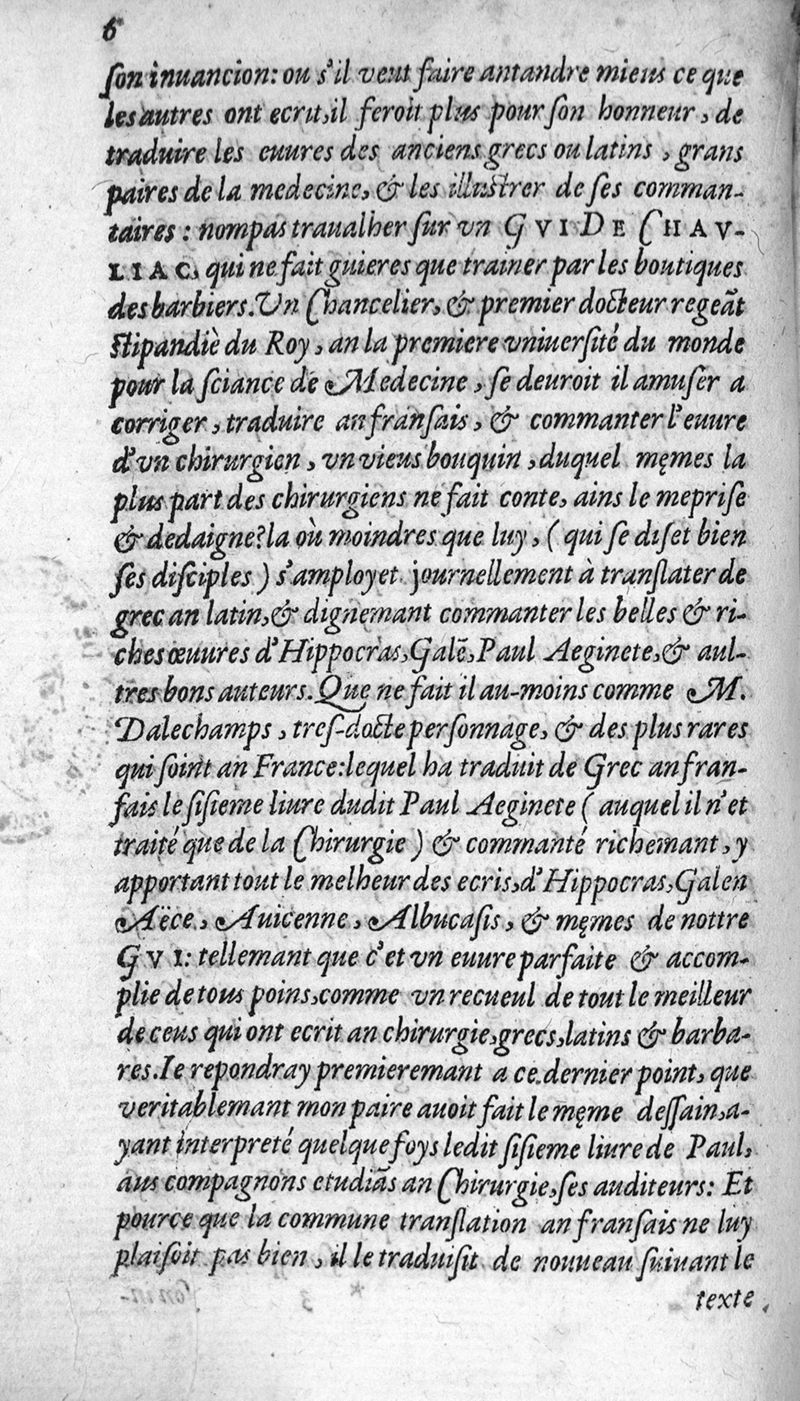 6
ſon inuancion: ou s'il veut faire antandre mieus ce que
les autres ont ecrit, il feroit plus pour ſon honneur, de
traduire les euures des anciens grecs ou latins, grans
paires de la medecine, & les illuſtrer de ſes comman-
taires: nompas traualher ſur vn GVI DE CHAV-
LIAC, qui ne fait guieres que trainer par les boutiques
des barbiers. Vn Chancelier, & premier docteur regeãt
ſtipandiè du Roy, an la premiere vniuerſité du monde
pour la ſciance de Medecine, ſe deuroit il amuſer a
corriger, traduire an franſais, & commanter l'euure
d'vn chirurgien, vn vieus bouquin, duquel męmes la
plus part des chirurgiens ne fait conte, ains le mepriſe
& dedaigne? la où moindres que luy, (qui ſe diſet bien
ſes diſciples) s'amployet journellement à tranſlater de
grec an latin, & dignemant commanter les belles & ri-
ches œuures d'Hippocras, Galẽ, Paul Aeginete, & aul-
tres bons auteurs. Que ne fait il au-moins comme M.
Dalechamps, treſ-docte perſonnage, & des plus rares
qui ſoint an France: lequel ha traduit de Grec an fran-
ſais le ſiſieme liure dudit Paul Aeginete (auquel il n'et
traité que de la Chirurgie) & commanté richemant, y
apportant tout le melheur des ecris, d'Hippocras, Galen
Aëce, Auicenne, Albucaſis, & męmes de nottre
GVI: tellemant que c'et vn euure parfaite & accom-
plie de tous poins, comme vn recueul de tout le meilleur
de ceus qui ont ecrit an chirurgie, grecs, latins & barba-
res. Ie repondray premieremant a ce dernier point, que
veritablemant mon paire auoit fait le męme deſſain, a-
yant interpreté quelque foys ledit ſiſieme liure de Paul,
aus compagnons etudiãs an Chirurgie, ſes auditeurs: Et
pource que la commune tranſlation an franſais ne luy
plaiſoit pas bien, il le traduiſit de nouueau ſuiuant le
texte